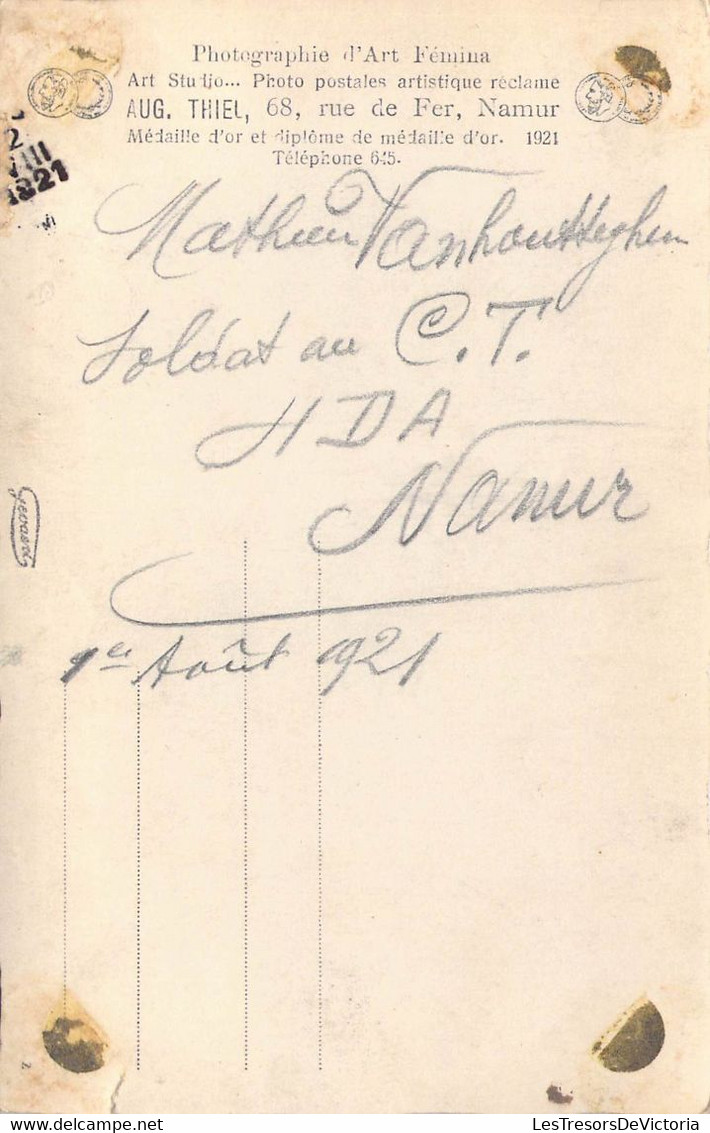 Photographie d'Art Fémina
Art Studio... Photo postales artistique réclame
AUG. THIEL, 68, rue de Fer, Namur
Médaille d'or et diplôme de médaille d'or. 1921
Téléphone 645.
2
VIII
1921
Mathieu Vanhoutteghem
Soldat au C.T.
HDA
Namur
Gevaert
1er Août 1921
LesTresorsDeVictoria@DELCAMPE.NET